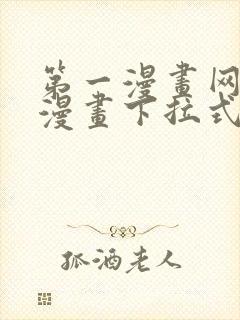 第一漫畫网
漫畫下拉式
孤酒老人